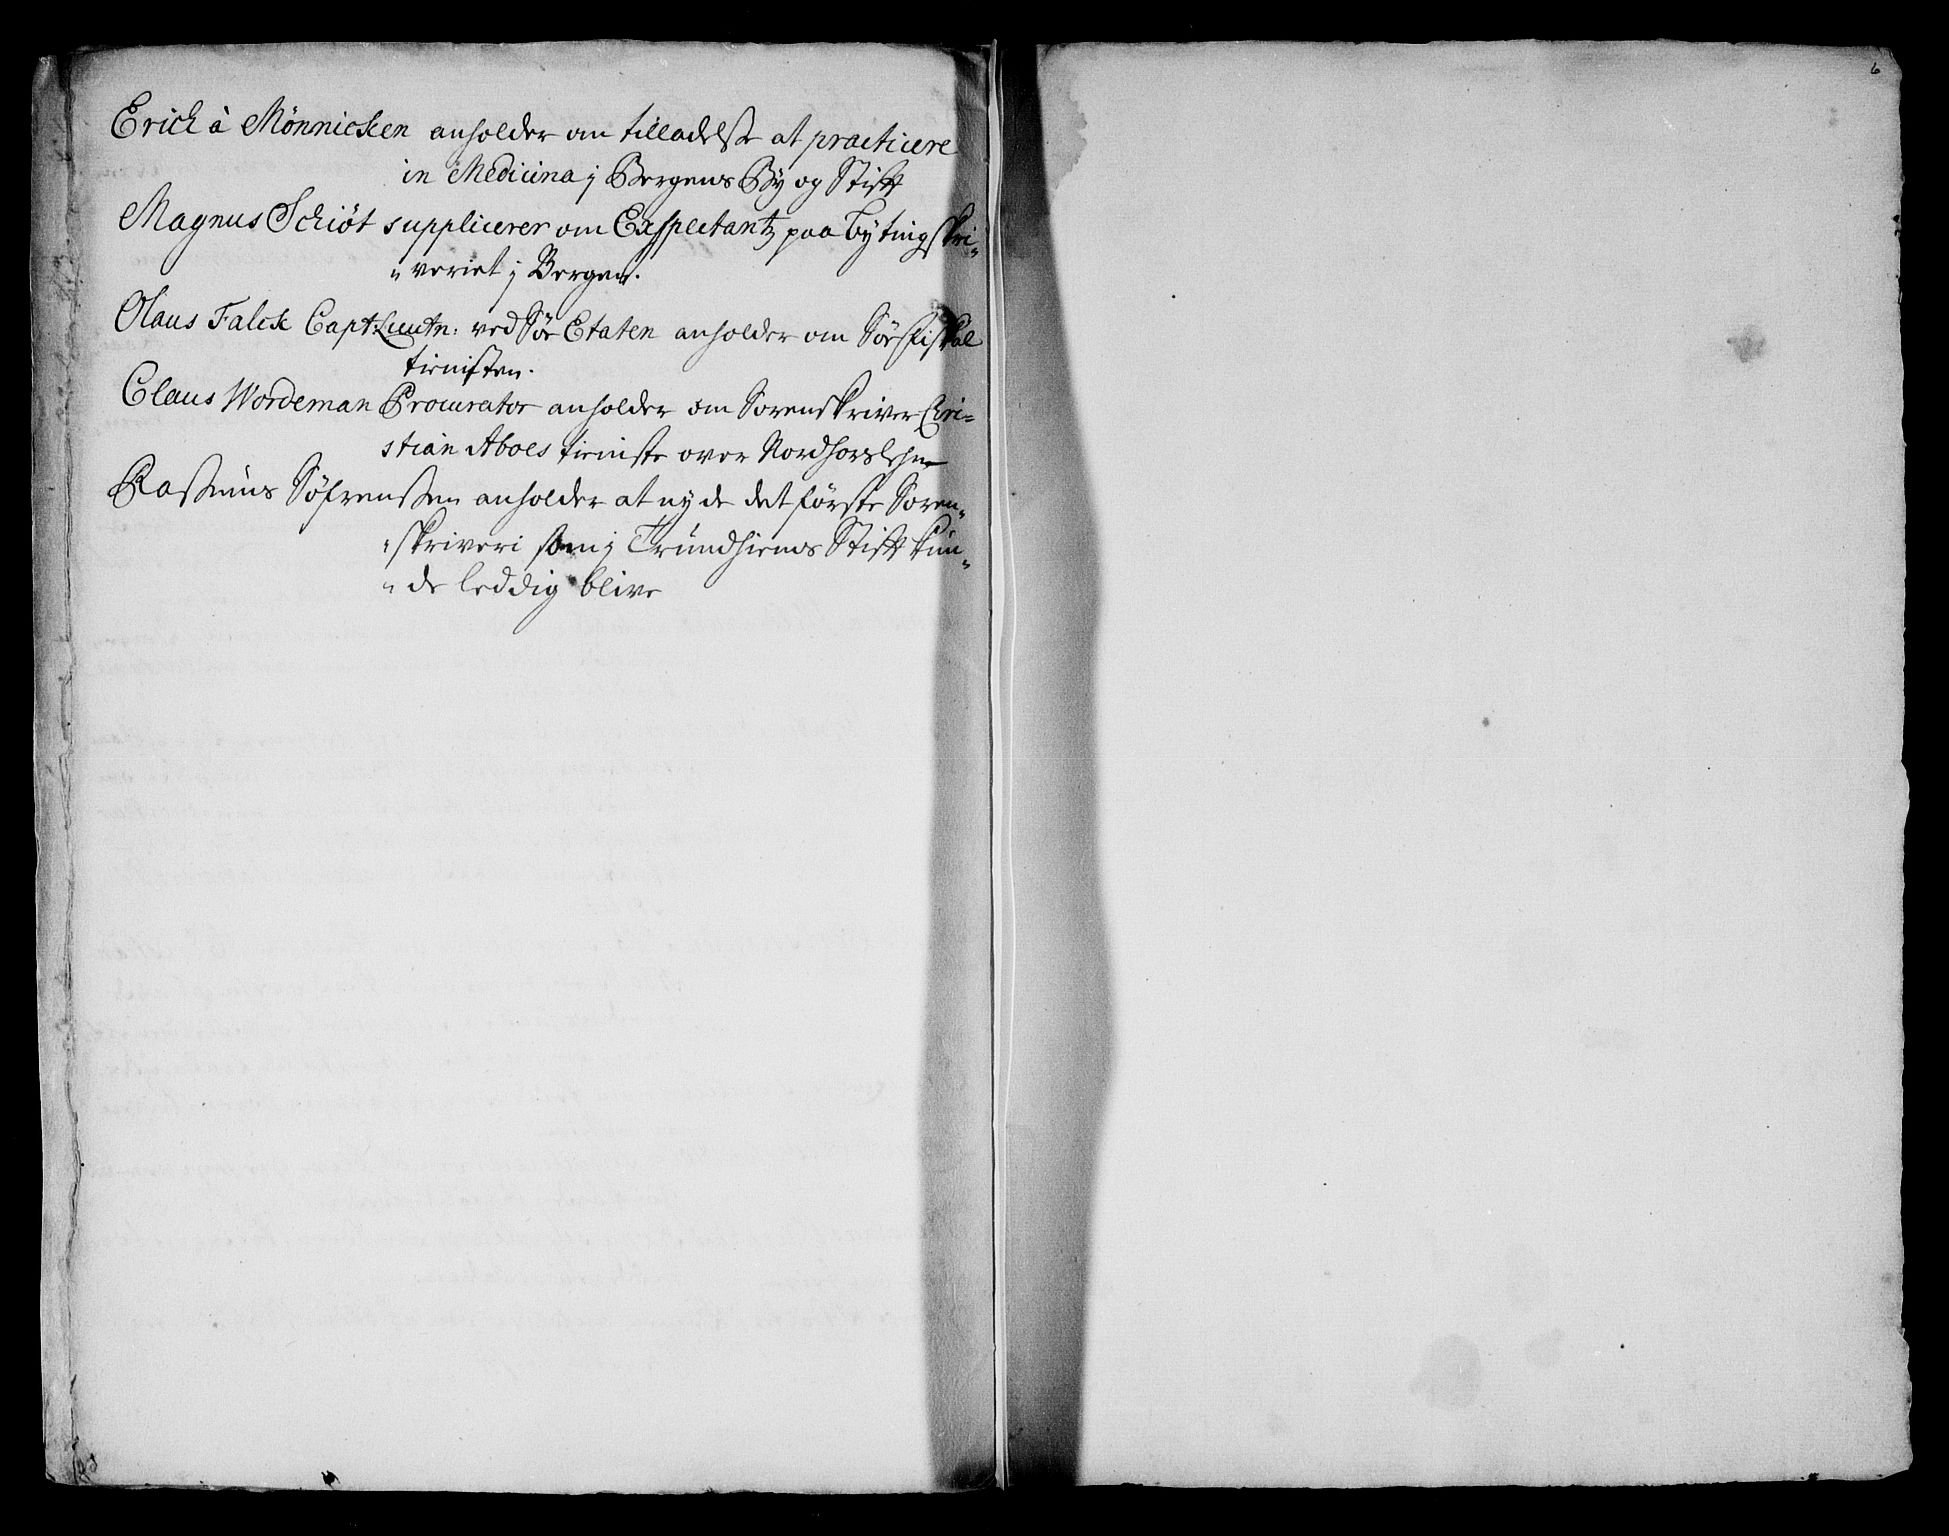 Erich à Mönnichen anholder om tilladelse at practicere
in Medicina i Bergens By og Stift
Magnus Schiöt supplicerer om Exspectantz paa Bytingskri-
-veriet i Bergen.
Olaus Falck Capt: Lieutn: ved Söe Etaten anholder om Söe fiskal
tienisten.
Claus Wordeman Procurator anholder om Sorenskriver Chri-
stian Aboes tieniste over Nordhorslehn
Rasmus Söfrensen anholder at nyde det förste Soren-
-skriveri som i Trundhiems Stift kun-
-de leddig blive
6